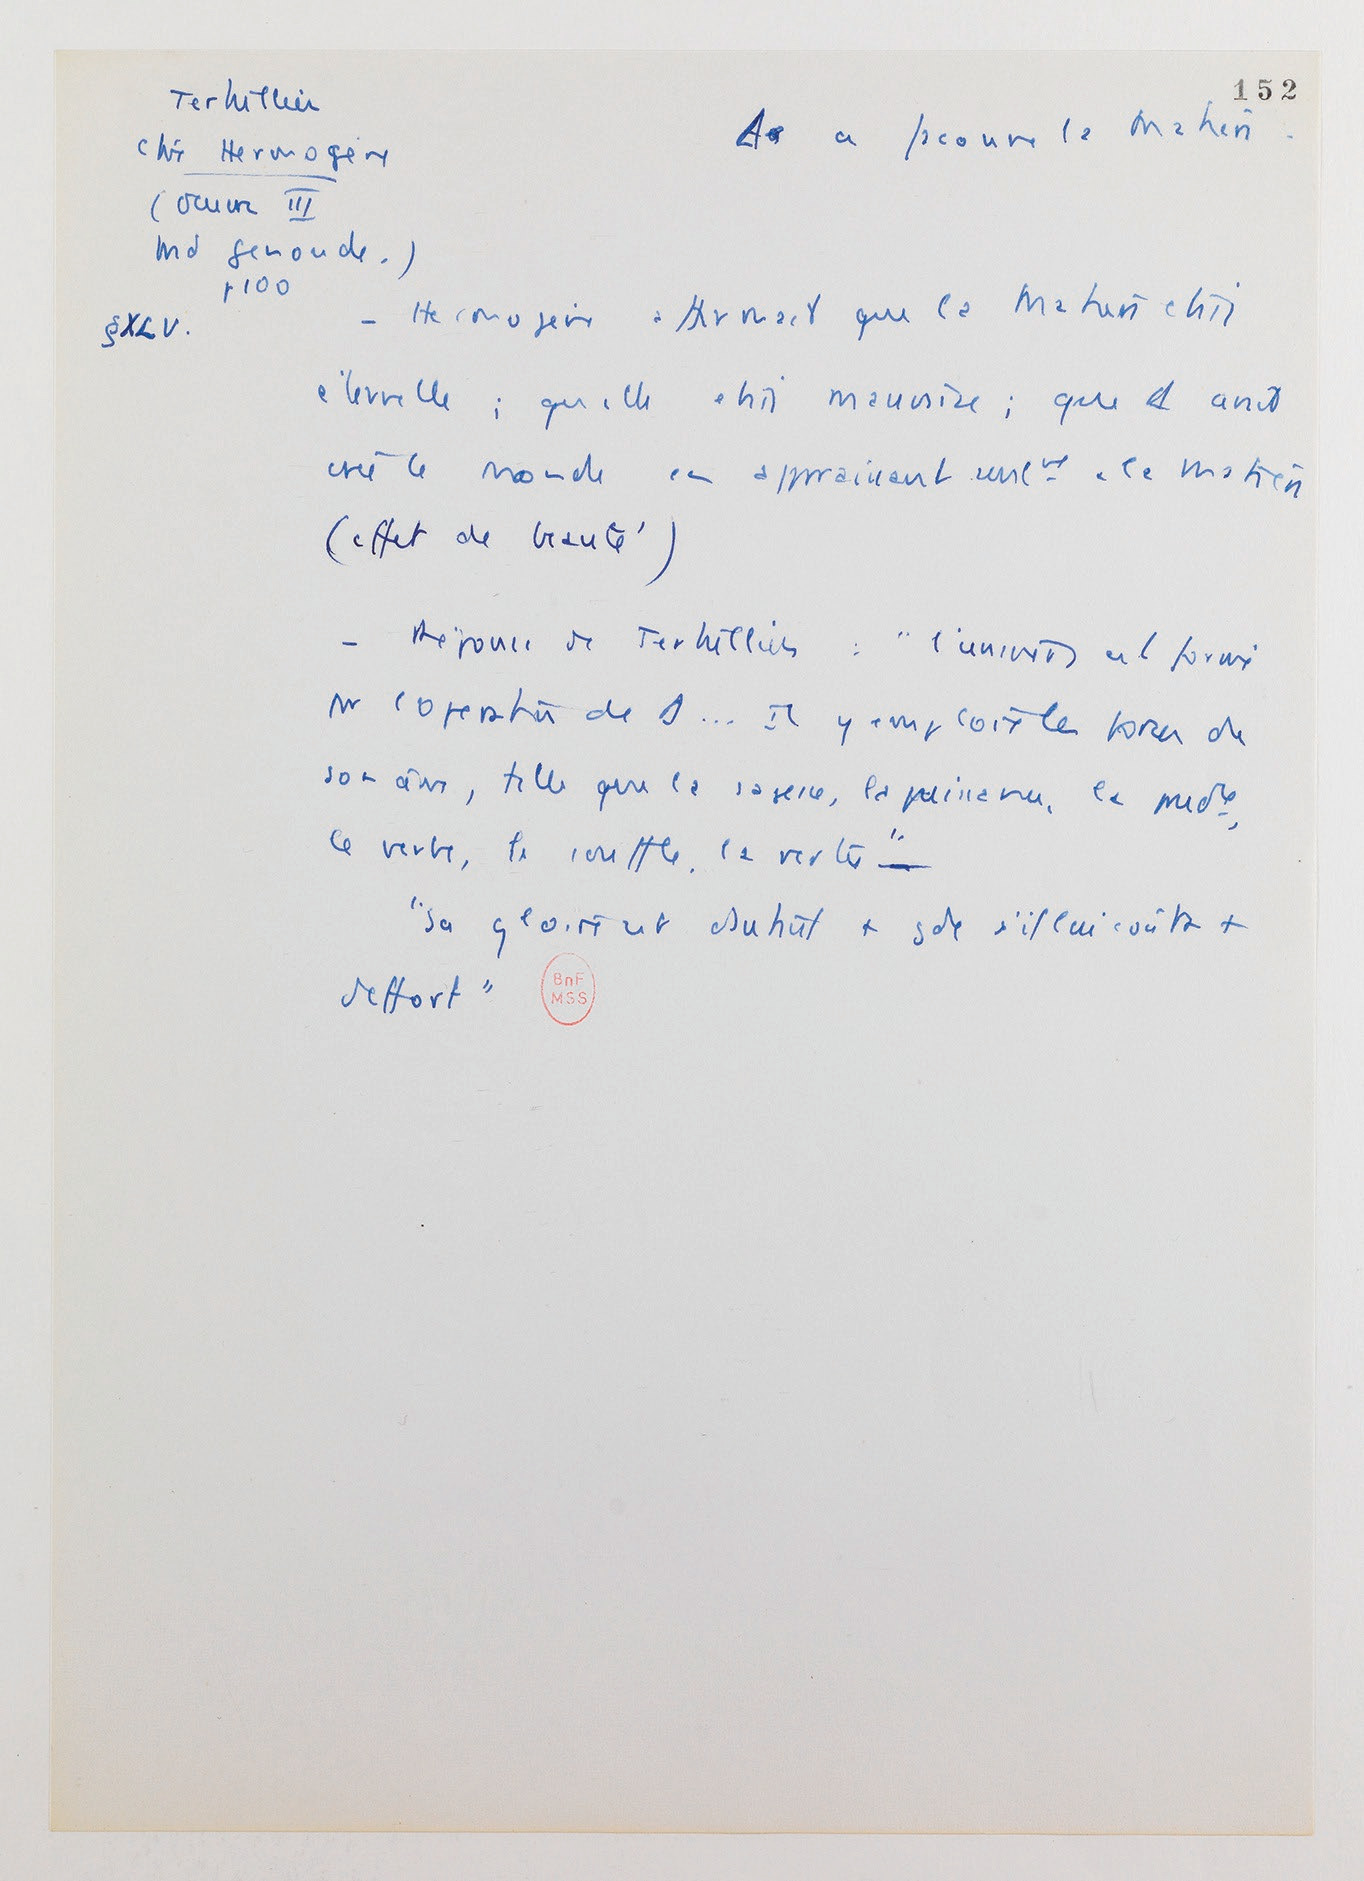 152
Tertullien
Ctre Hermogène
(Oeuvre III
trad Genoude.)
p100
a la matière.
§XLV.
- Hermogène affirmait que la Matière était
éternelle ; qu'elle était mauvaise ; que D avait
créé le monde en apparaissant seulmt a la matière
(effet de beauté)
- Réponse de Tertullien : "l'univers est formé
par l'opération de D... Il y employa les forces de
son âme, telle que la sagesse, la puissance, la prudce,
le verbe, le souffle, la vertu".
"Sa gloire est d'autant + gde s'il lui coûta +
d'effort"
BnF
MSS